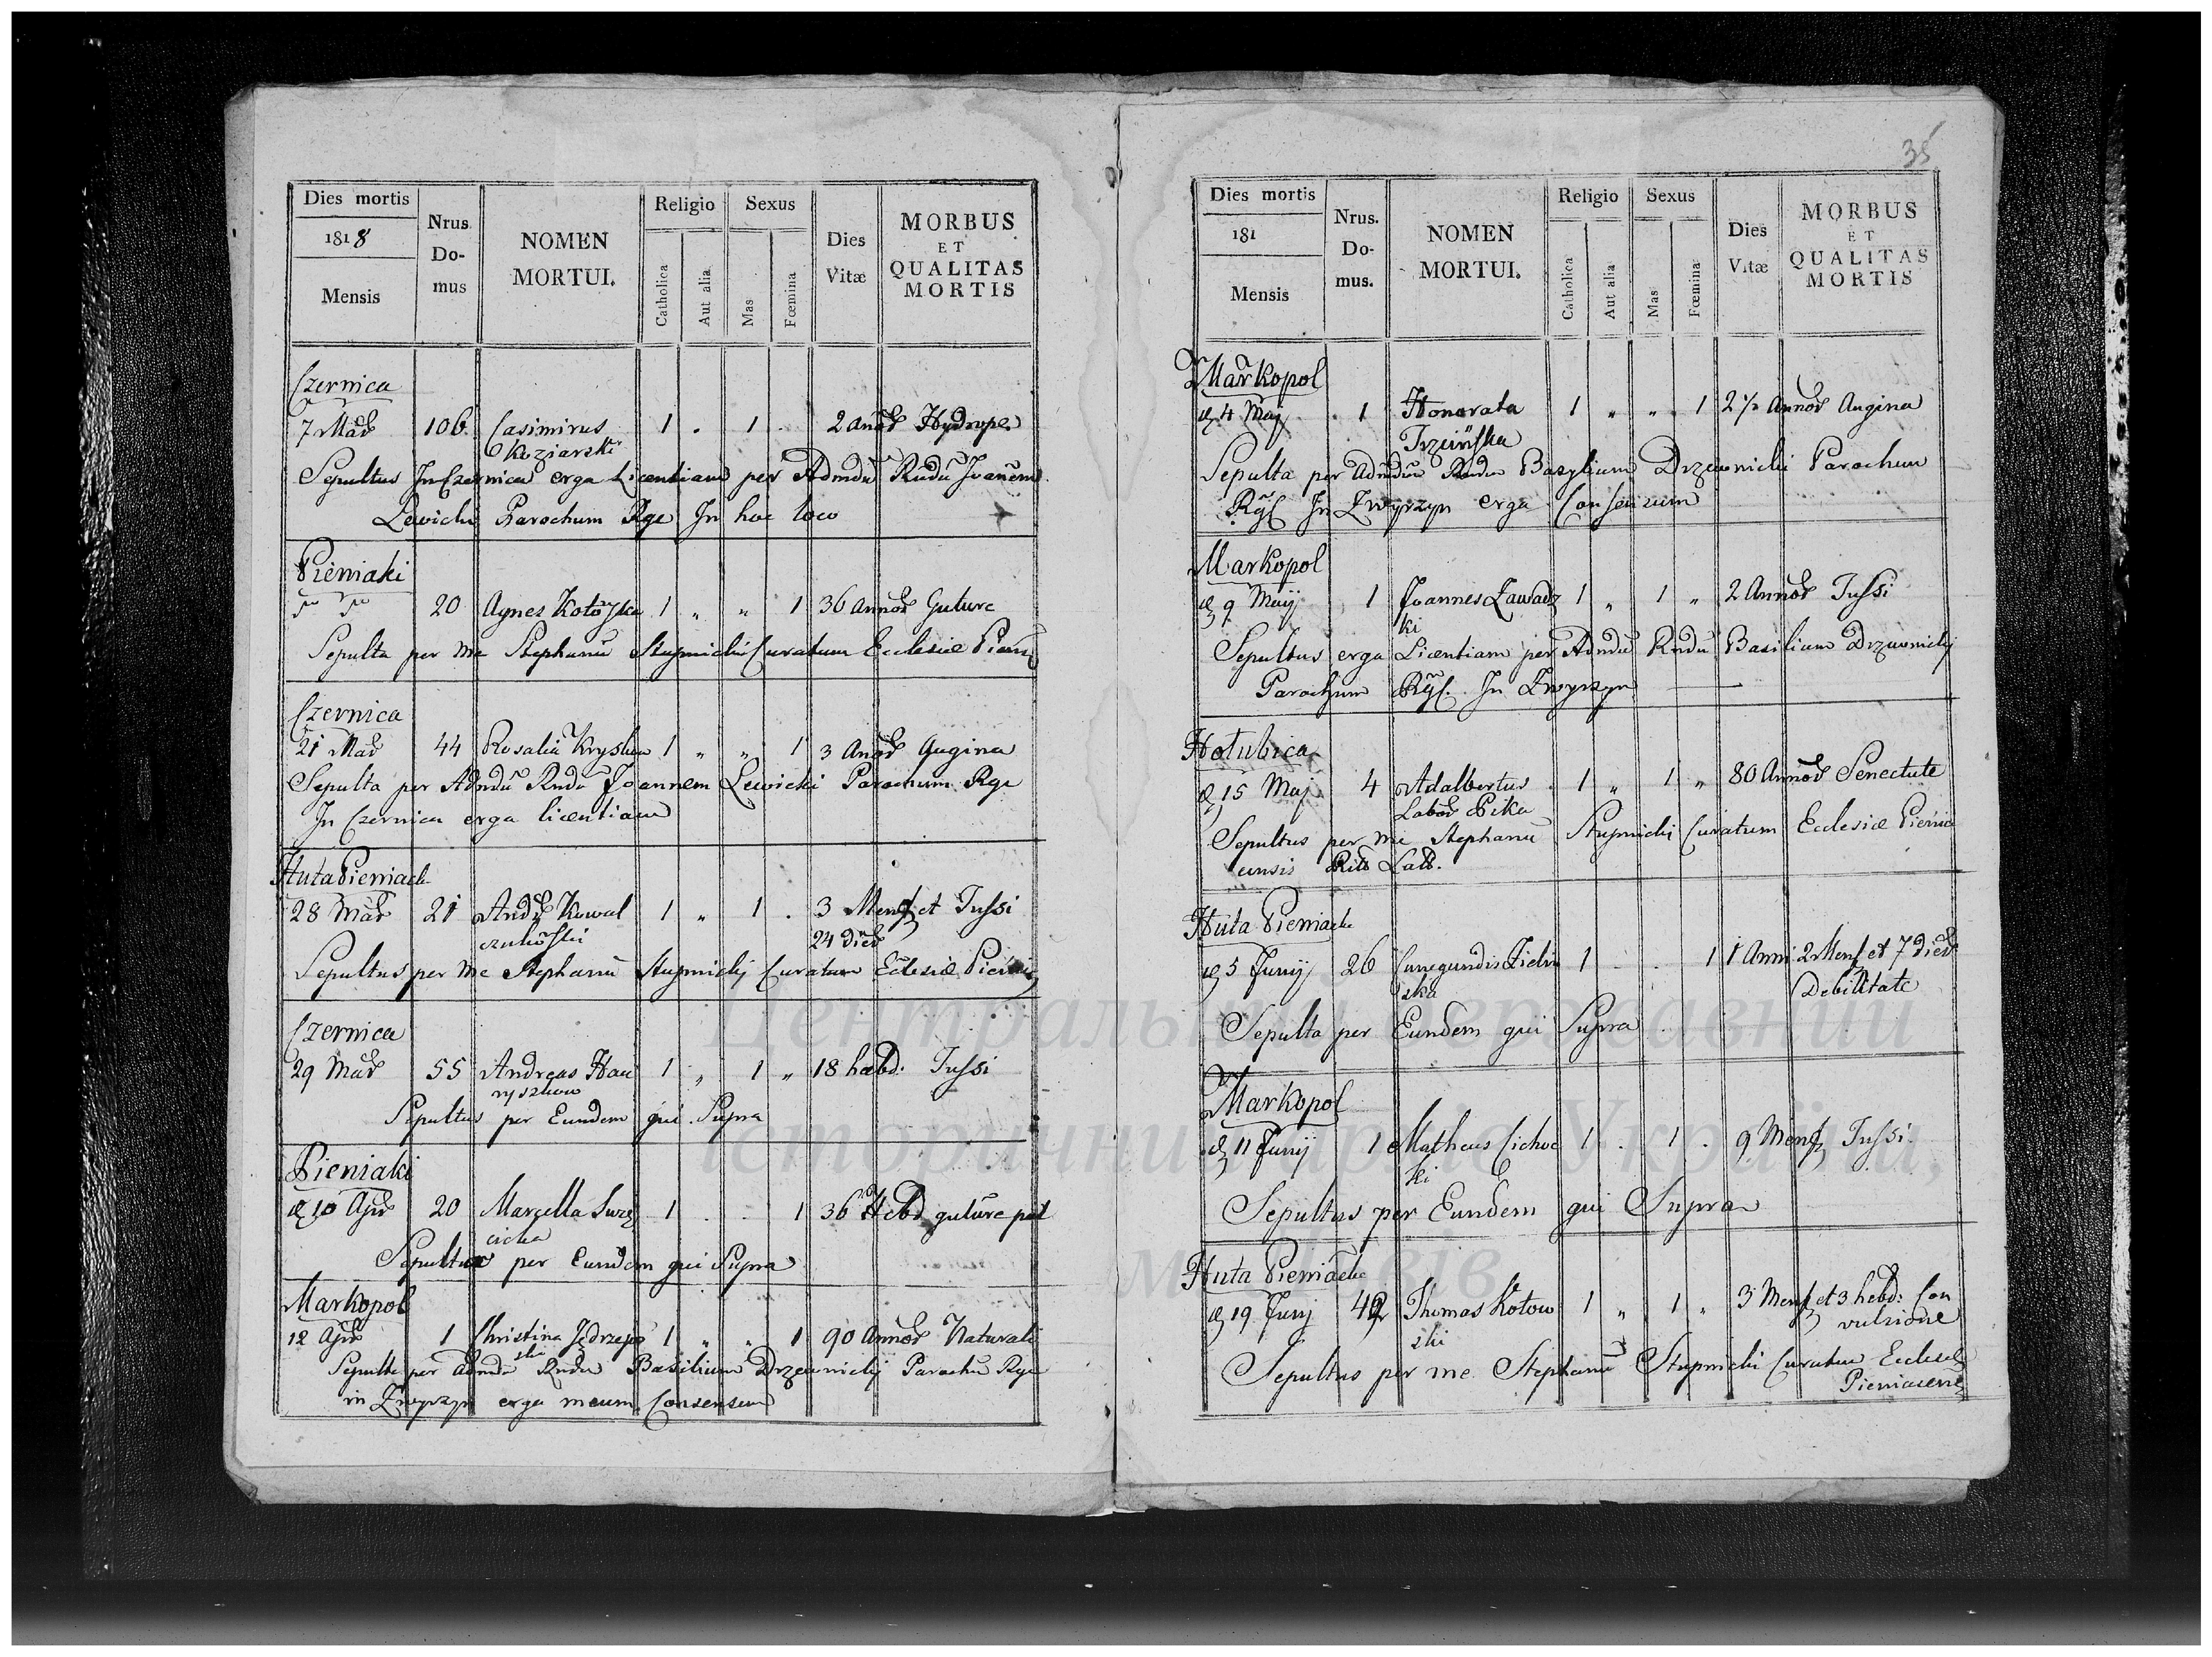 35
Dies mortis
1818
Mensis
Nrus Do- mus
NOMEN MORTUI.
Religio
Catholica
Aut alia
Sexus
Mas
Fœmina
Dies Vitæ
MORBUS ET QUALITAS MORTIS
Czernica
7 Mar 106. Casimirus 1 . 1 . 2 anor Hydrope
Koziarski
Sepultus In Czernica erga Licentiam per Admdu Rndu Joanem
Lewicki Parochum Rgc In hoc loco
Pieniaki
20 Agnes 1 „ „ 1 36 Annor Guture
Sepulta per Me Stephanu Stupnicki Curatum Ecclesiæ Pieni
Czernica
21 Mar 44 Rosalia 1 „ „ 1 3 Anor Angina
Sepulta per Admdu Rndu Joannem Lewicki Parochum Rgc
In Czernica erga licentiam
Huta Pieniack
28 Mar 21 Andr Kowal 1 „ 1 . 3 Mens et Tussi
czukoski 24 Dier
Sepultus per Me Stephanu Stupnickj Curatum Eclesiæ Pieni
Czernica
29 Mar 55 Andreas Hau 1 „ 1 „ 18 hæbd: Tussi
ryszkow
Sepultus per Eundem qui Supra
Pieniaki
d 10 Apr 20 Marcella 1 . . 1 36 Hebd guture
cicka
per Eundem qui Supra
Markopol
12 Apr 1 Christina Jędrzejo 1 „ „ 1 90 Annor Naturali
ska
Sepulta per Admdu Rndu Basilium Drzewnickj Parochu Rgc
in Zwyrzyn erga meum Consensum
Dies mortis
181
Mensis
Nrus. Do- mus.
NOMEN MORTUI.
Religio
Catholica
Aut alia
Sexus
Mas
Fœmina
Dies Vitæ
MORBUS ET QUALITAS MORTIS
Markopol
d 4 Maj 1 Honorata 1 „ „ 1 2 1/2 Annor Angina
Sepulta per Admdu Rndu Basylium Drzewnicki Parochum
Rgc In Zwyrzyn erga Consensum
Markopol
d 9 Maij 1 Joannes Zawadz 1 „ 1 „ 2 Annor Tussi
ki
Sepultus erga Licentiam per Admdu Rndu Basilium Drzewnickj
Parochum Rgc. In Zwyrzyn
Hołubica
d 15 Maj 4 Adalbertus 1 „ 1 „ 80 Annor Senectute
Labor Pika
Sepultus per Me Stephanu Stupnicki Curatum Ecclesiæ Pienia
censis Rit Lat.
Huta Pieniack
d 5 Junij 26 Cunegundis Zieliń 1 . . 1 1 Anni 2 Mens et 7 Dier
ska Debilitate
Sepulta per Eundem qui Supra
Markopol
d 11 Junij 1 Matheus Cichoc 1 . 1 . 9 Mens Tussi.
ki
Sepultus per Eundem qui Supra
Huta Pieniack
d 19 Junj Thomas Kotow 1 „ 1 „ 3 Mens et 3 hebd: Con
ski vulsione
Sepultus per me Stephanu Stupnicki Curatu Ecclesiæ
Pieniacens
Центральний державний
історичний архів України,
м. Львів